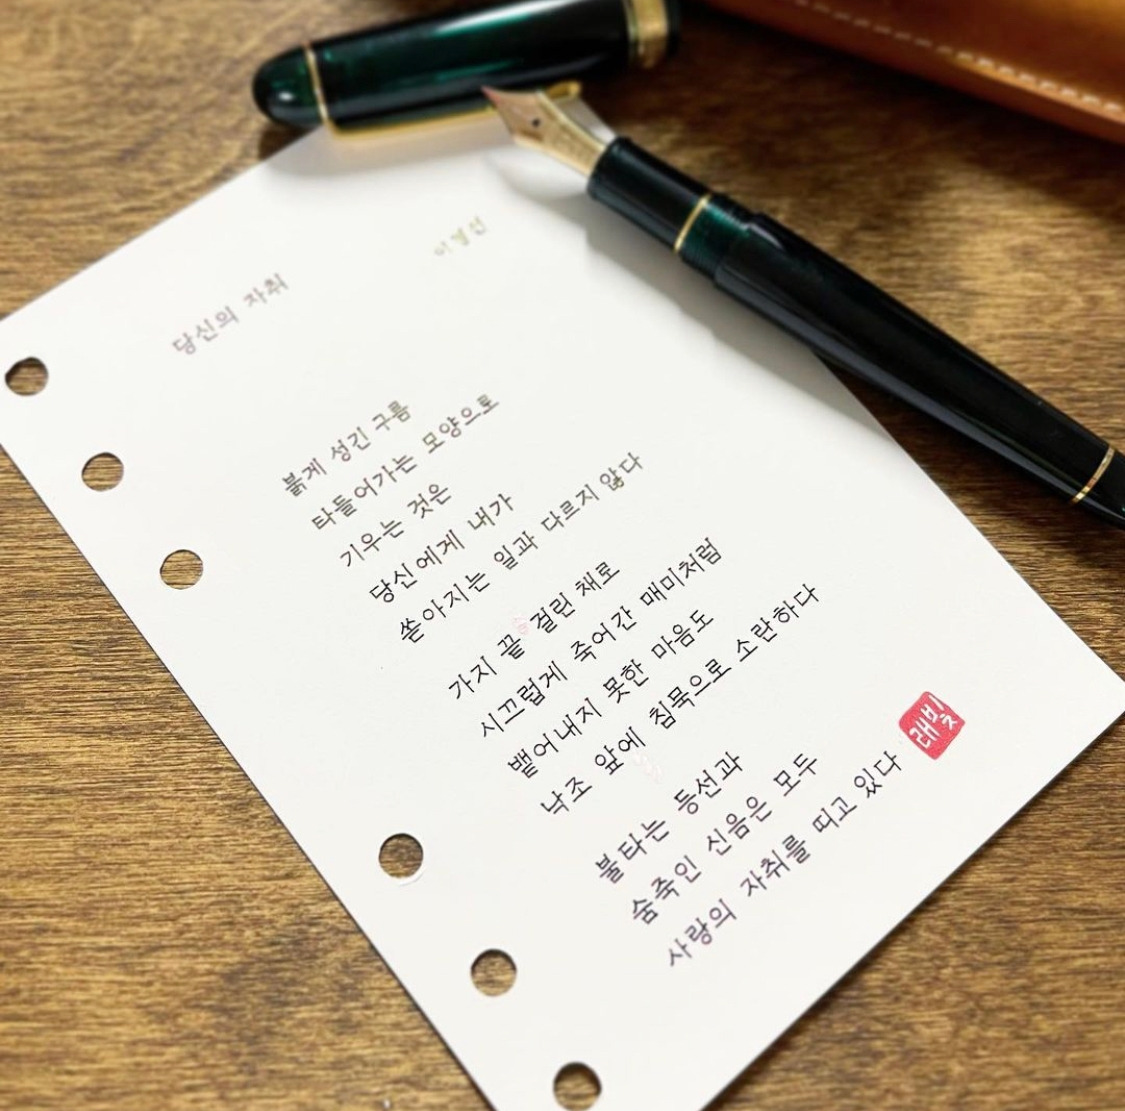 당신의 자취
붉게 성긴 구름
타들어가는 모양으로
기우는 것은
당신에게 내가
쏟아지는 일과 다르지 않다
가지 끝 걸린 채로
시끄럽게 죽어간 매미처럼
뱉어내지 못한 마음도
낙조 앞에 침묵으로 소란하다
불타는 등선과
숨죽인 신음은 모두
사랑의 자취를 띠고 있다
래빗